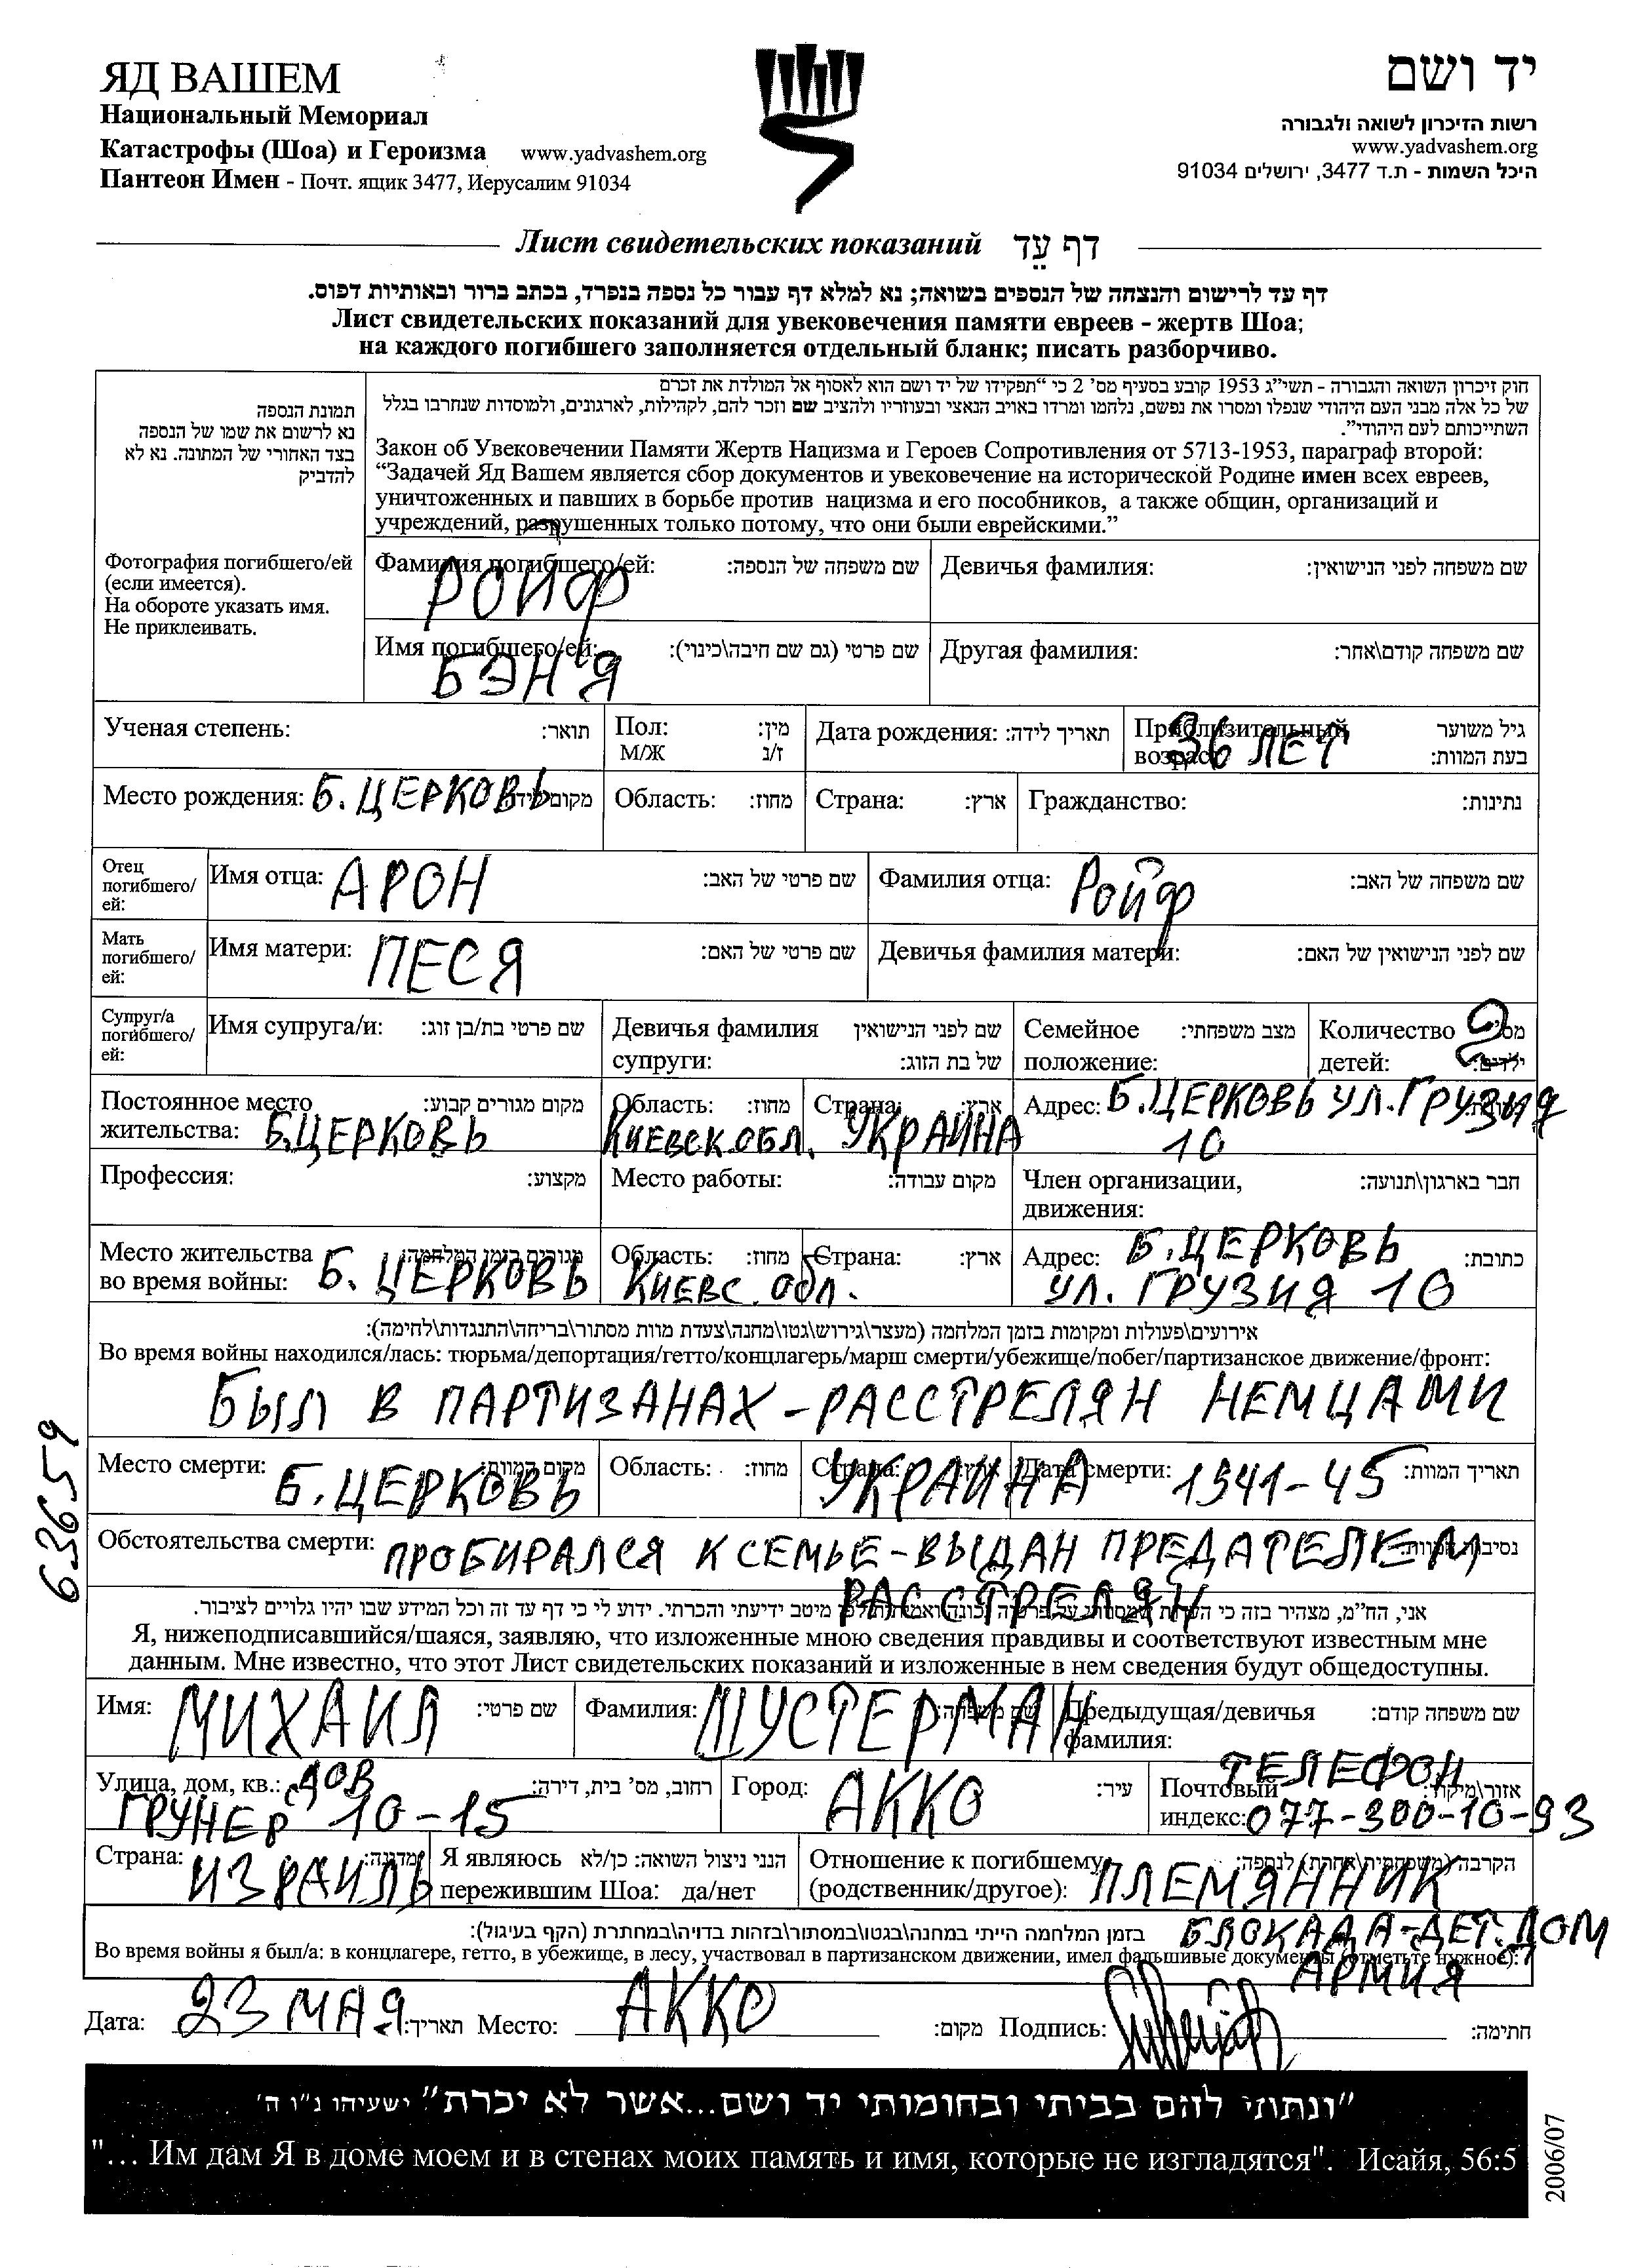 ЯД ВАШЕМ
Национальный Мемориал
Катастрофы (Шоа) и Героизма www.yadvashem.org
Пантеон Имен - Почт. ящик 3477, Иерусалим 91034
יד ושם
רשות הזיכרון לשואה ולגבורה
www.yadvashem.org
היכל השמות - ת.ד 3477, ירושלים 91034
Лист свидетельских показаний דף עֵד
דף עד לרישום והנצחה של הנספים בשואה; נא למלא דף עבור כל נספה בנפרד, בכתב ברור ובאותיות דפוס.
Лист свидетельских показаний для увековечения памяти евреев - жертв Шоа;
на каждого погибшего заполняется отдельный бланк; писать разборчиво.
תמונת הנספה
נא לרשום את שמו של הנספה
בצד האחורי של המתונה. נא לא
להדביק
Фотография погибшего/ей
(если имеется).
На обороте указать имя.
Не приклеивать.
חוק זיכרון השואה והגבורה - תשי"ג 1953 קובע בסעיף מס' 2 כי "תפקידו של יד ושם הוא לאסוף אל המולדת את זכרם
של כל אלה מבני העם היהודי שנפלו ומסרו את נפשם, נלחמו ומרדו באויב הנאצי ובעוזריו ולהציב שם וזכר להם, לקהילות, לארגונים, ולמוסדות שנחרבו בגלל
השתייכותם לעם היהודי".
Закон об Увековечении Памяти Жертв Нацизма и Героев Сопротивления от 5713-1953, параграф второй:
“Задачей Яд Вашем является сбор документов и увековечение на исторической Родине имен всех евреев,
уничтоженных и павших в борьбе против нацизма и его пособников, а также общин, организаций и
учреждений, разрушенных только потому, что они были еврейскими.”
Фамилия погибшего/ей: שם משפחה של הנספה: Девичья фамилия: שם משפחה לפני הנישואין:
РОЙФ
Имя погибшего/ей: שם פרטי (גם שם חיבה\כינוי): Другая фамилия: שם משפחה קודם\אחר:
БЭНЯ
Ученая степень: תואר: Пол: מין: Дата рождения: תאריך לידה: Приблизительный גיל משוער
М/Ж ז/נ возраст: בעת המוות: 36 ЛЕТ
Место рождения: Б. ЦЕРКОВЬ מקום לידה: Область: מחוז: Страна: ארץ: Гражданство: נתינות:
Отец
погибшего/
ей:
Имя отца: АРОН שם פרטי של האב: Фамилия отца: РОЙФ שם משפחה של האב:
Мать
погибшего/
ей:
Имя матери: ПЕСЯ שם פרטי של האם: Девичья фамилия матери: שם לפני הנישואין של האם:
Супруг/а
погибшего/
ей:
Имя супруга/и: שם פרטי בת/בן זוג: Девичья фамилия שם לפני הנישואין Семейное מצב משפחתי: Количество מס' 2
супруги: של בת הזוג: положение: детей: ילדים:
Постоянное место מקום מגורים קבוע: Область: מחוז: Страна: ארץ: Адрес: Б. ЦЕРКОВЬ УЛ. ГРУЗИЯ
жительства: Б.ЦЕРКОВЬ КИЕВСК.ОБЛ. УКРАИНА 10
Профессия: מקצוע: Место работы: מקום עבודה: Член организации, חבר בארגון\תנועה:
движения:
Место жительства מגורים בזמן המלחמה: Область: מחוז: Страна: ארץ: Адрес: Б. ЦЕРКОВЬ כתובת:
во время войны: Б. ЦЕРКОВЬ КИЕВС. ОБЛ. УЛ. ГРУЗИЯ 10
אירועים\פעולות ומקומות בזמן המלחמה (מעצר\גירוש\גטו\מחנה\צעדת מוות מסתור\בריחה\התנגדות\לחימה):
Во время войны находился/лась: тюрьма/депортация/гетто/концлагерь/марш смерти/убежище/побег/партизанское движение/фронт:
БЫЛ В ПАРТИЗАНАХ - РАССТРЕЛЯН НЕМЦАМИ
Место смерти: Б. ЦЕРКОВЬ מקום המוות: Область: מחוז: Страна: УКРАИНА ארץ: Дата смерти: 1941-45 תאריך המוות:
Обстоятельства смерти: ПРОБИРАЛСЯ К СЕМЬЕ - ВЫДАН ПРЕДАТЕЛЕМ נסיבות המוות:
РАССТРЕЛЯН
אני, הח"מ, מצהיר בזה כי העדות שמסרתי על פרטיה נכונה ואמיתית לפי מיטב ידיעתי והכרתי. ידוע לי כי דף עד זה וכל המידע שבו יהיו גלויים לציבור.
Я, нижеподписавшийся/шаяся, заявляю, что изложенные мною сведения правдивы и соответствуют известным мне
данным. Мне известно, что этот Лист свидетельских показаний и изложенные в нем сведения будут общедоступны.
Имя: МИХАИЛ שם פרטי: Фамилия: ШУСТЕРМАН שם משפחה: Предыдущая/девичья שם משפחה קודם:
фамилия:
Улица, дом, кв.: ДОВ רחוב, מס' בית, דירה: Город: АККО עיר: Почтовый ТЕЛЕФОН אזור\מיקוד:
ГРУНЕР 10-15 индекс: 077-300-10-93
Страна: ИЗРАИЛЬ מדינה: Я являюсь הנני ניצול השואה: כן/לא Отношение к погибшему הקרבה (משפחתית\אחרת) לנספה:
пережившим Шоа: да/нет (родственник/другое): ПЛЕМЯННИК
בזמן המלחמה הייתי במחנה\בגטו\במסתור\בזהות בדויה\במחתרת (הקף בעיגול): БЛОКАДА-ДЕТ.ДОМ
Во время войны я был/а: в концлагере, гетто, в убежище, в лесу, участвовал в партизанском движении, имел фальшивые документы (отметьте нужное):
АРМИЯ
Дата: 23 МАЯ תאריך: Место: АККО מקום: Подпись: חתימה:
"ונתתי להם בביתי ובחומותי יד ושם...אשר לא יכרת" ישעיהו נ"ו ה'
"... Им дам Я в доме моем и в стенах моих память и имя, которые не изгладятся". Исайя, 56:5
63659
2006/07